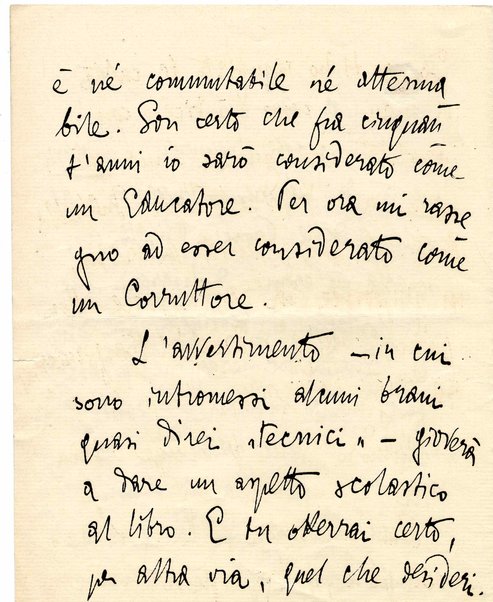 è né commutabile né attenua
bile. Son certo che fra cinquan
t'anni io sarò considerato come
un Educatore. Per ora mi rasse
gno ad esser considerato come
un Corruttore.
L'avvertimento – in cui
sono intromessi alcuni brani
quasi direi «tecnici» – gioverà
a dare un aspetto scolastico
al libro. E tu otterrai certo,
per altra via, quel che desideri.